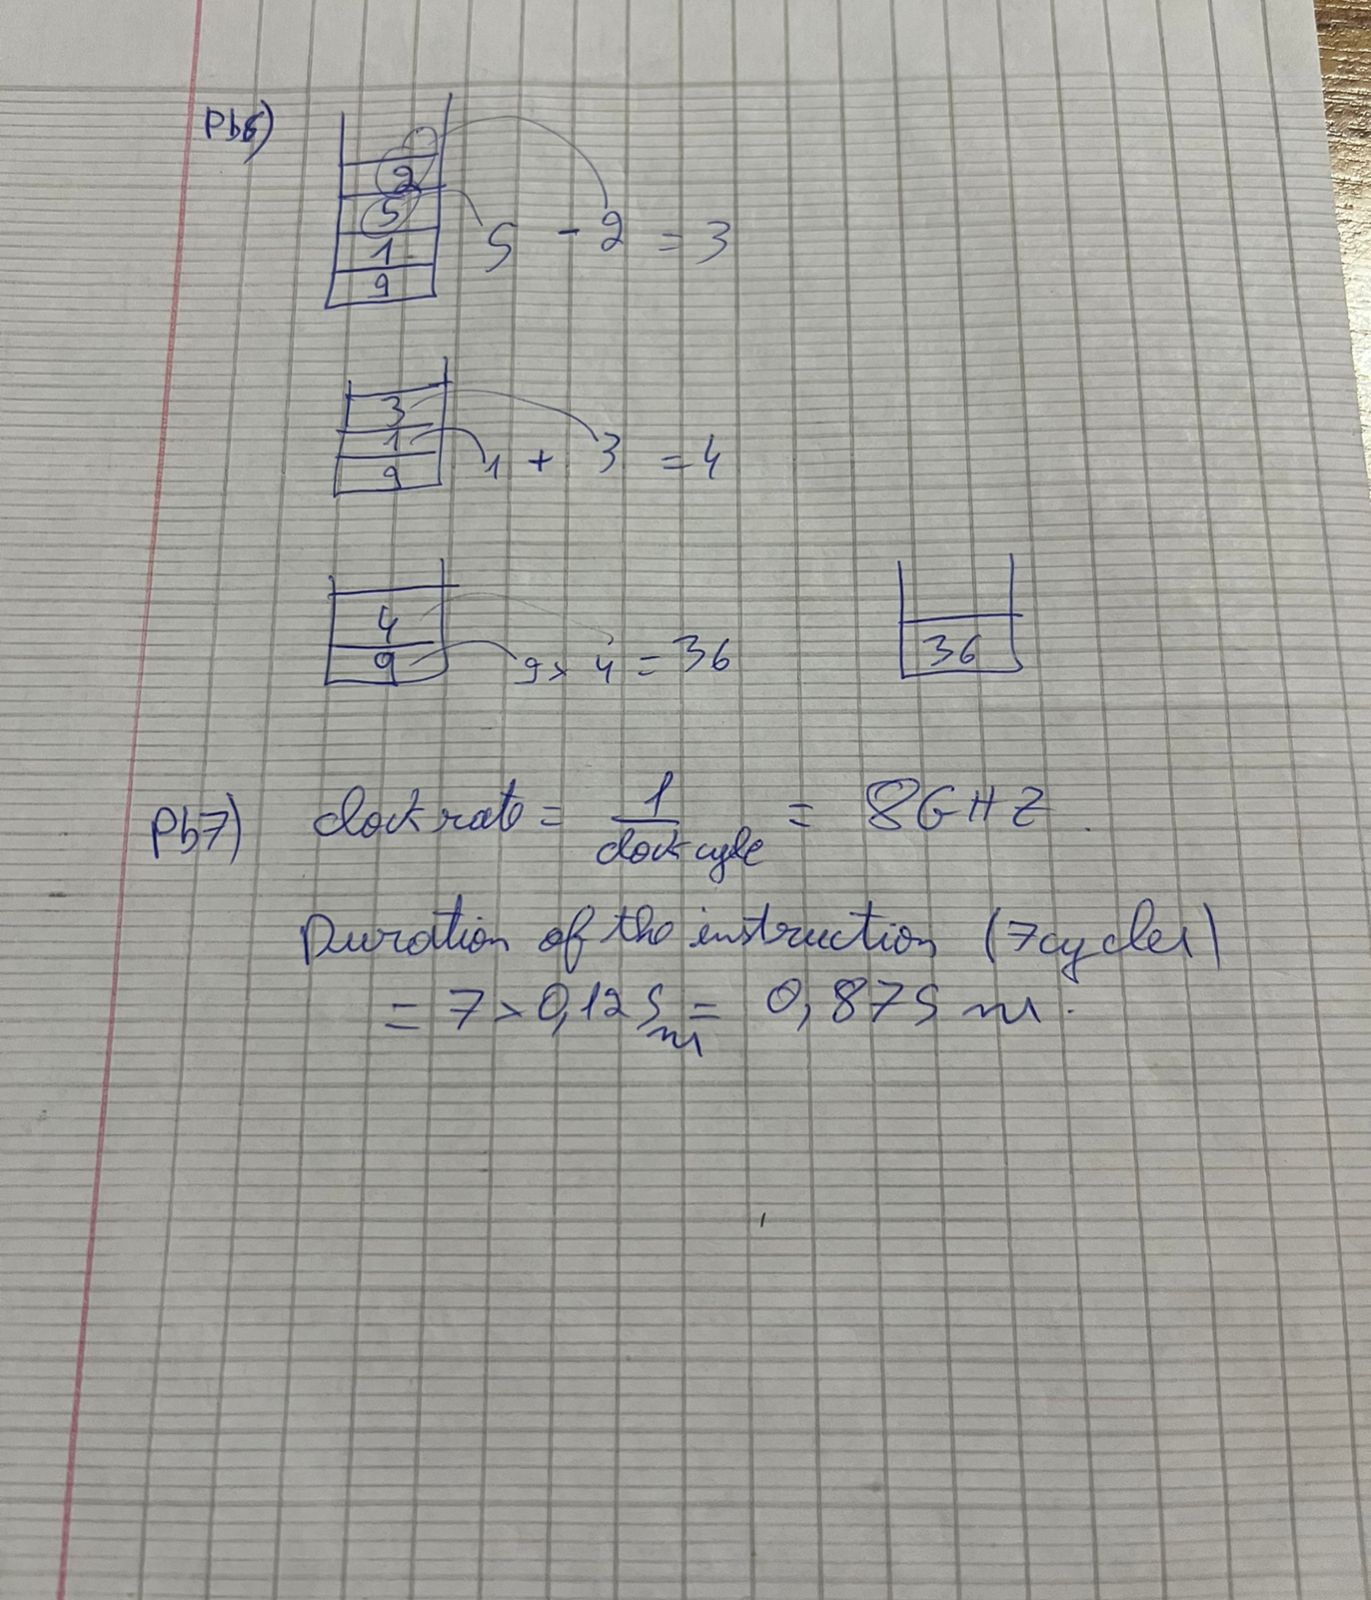 Pb6)
2
5
1
9
5 - 2 = 3
3
1
9
1 + 3 = 4
4
9
9 × 4 = 36
36
Pb7) clock rate = 1 / clock cycle = 8 GHZ.
Duration of the instruction (7 cycles)
= 7 × 0,125 ns = 0,875 ns.